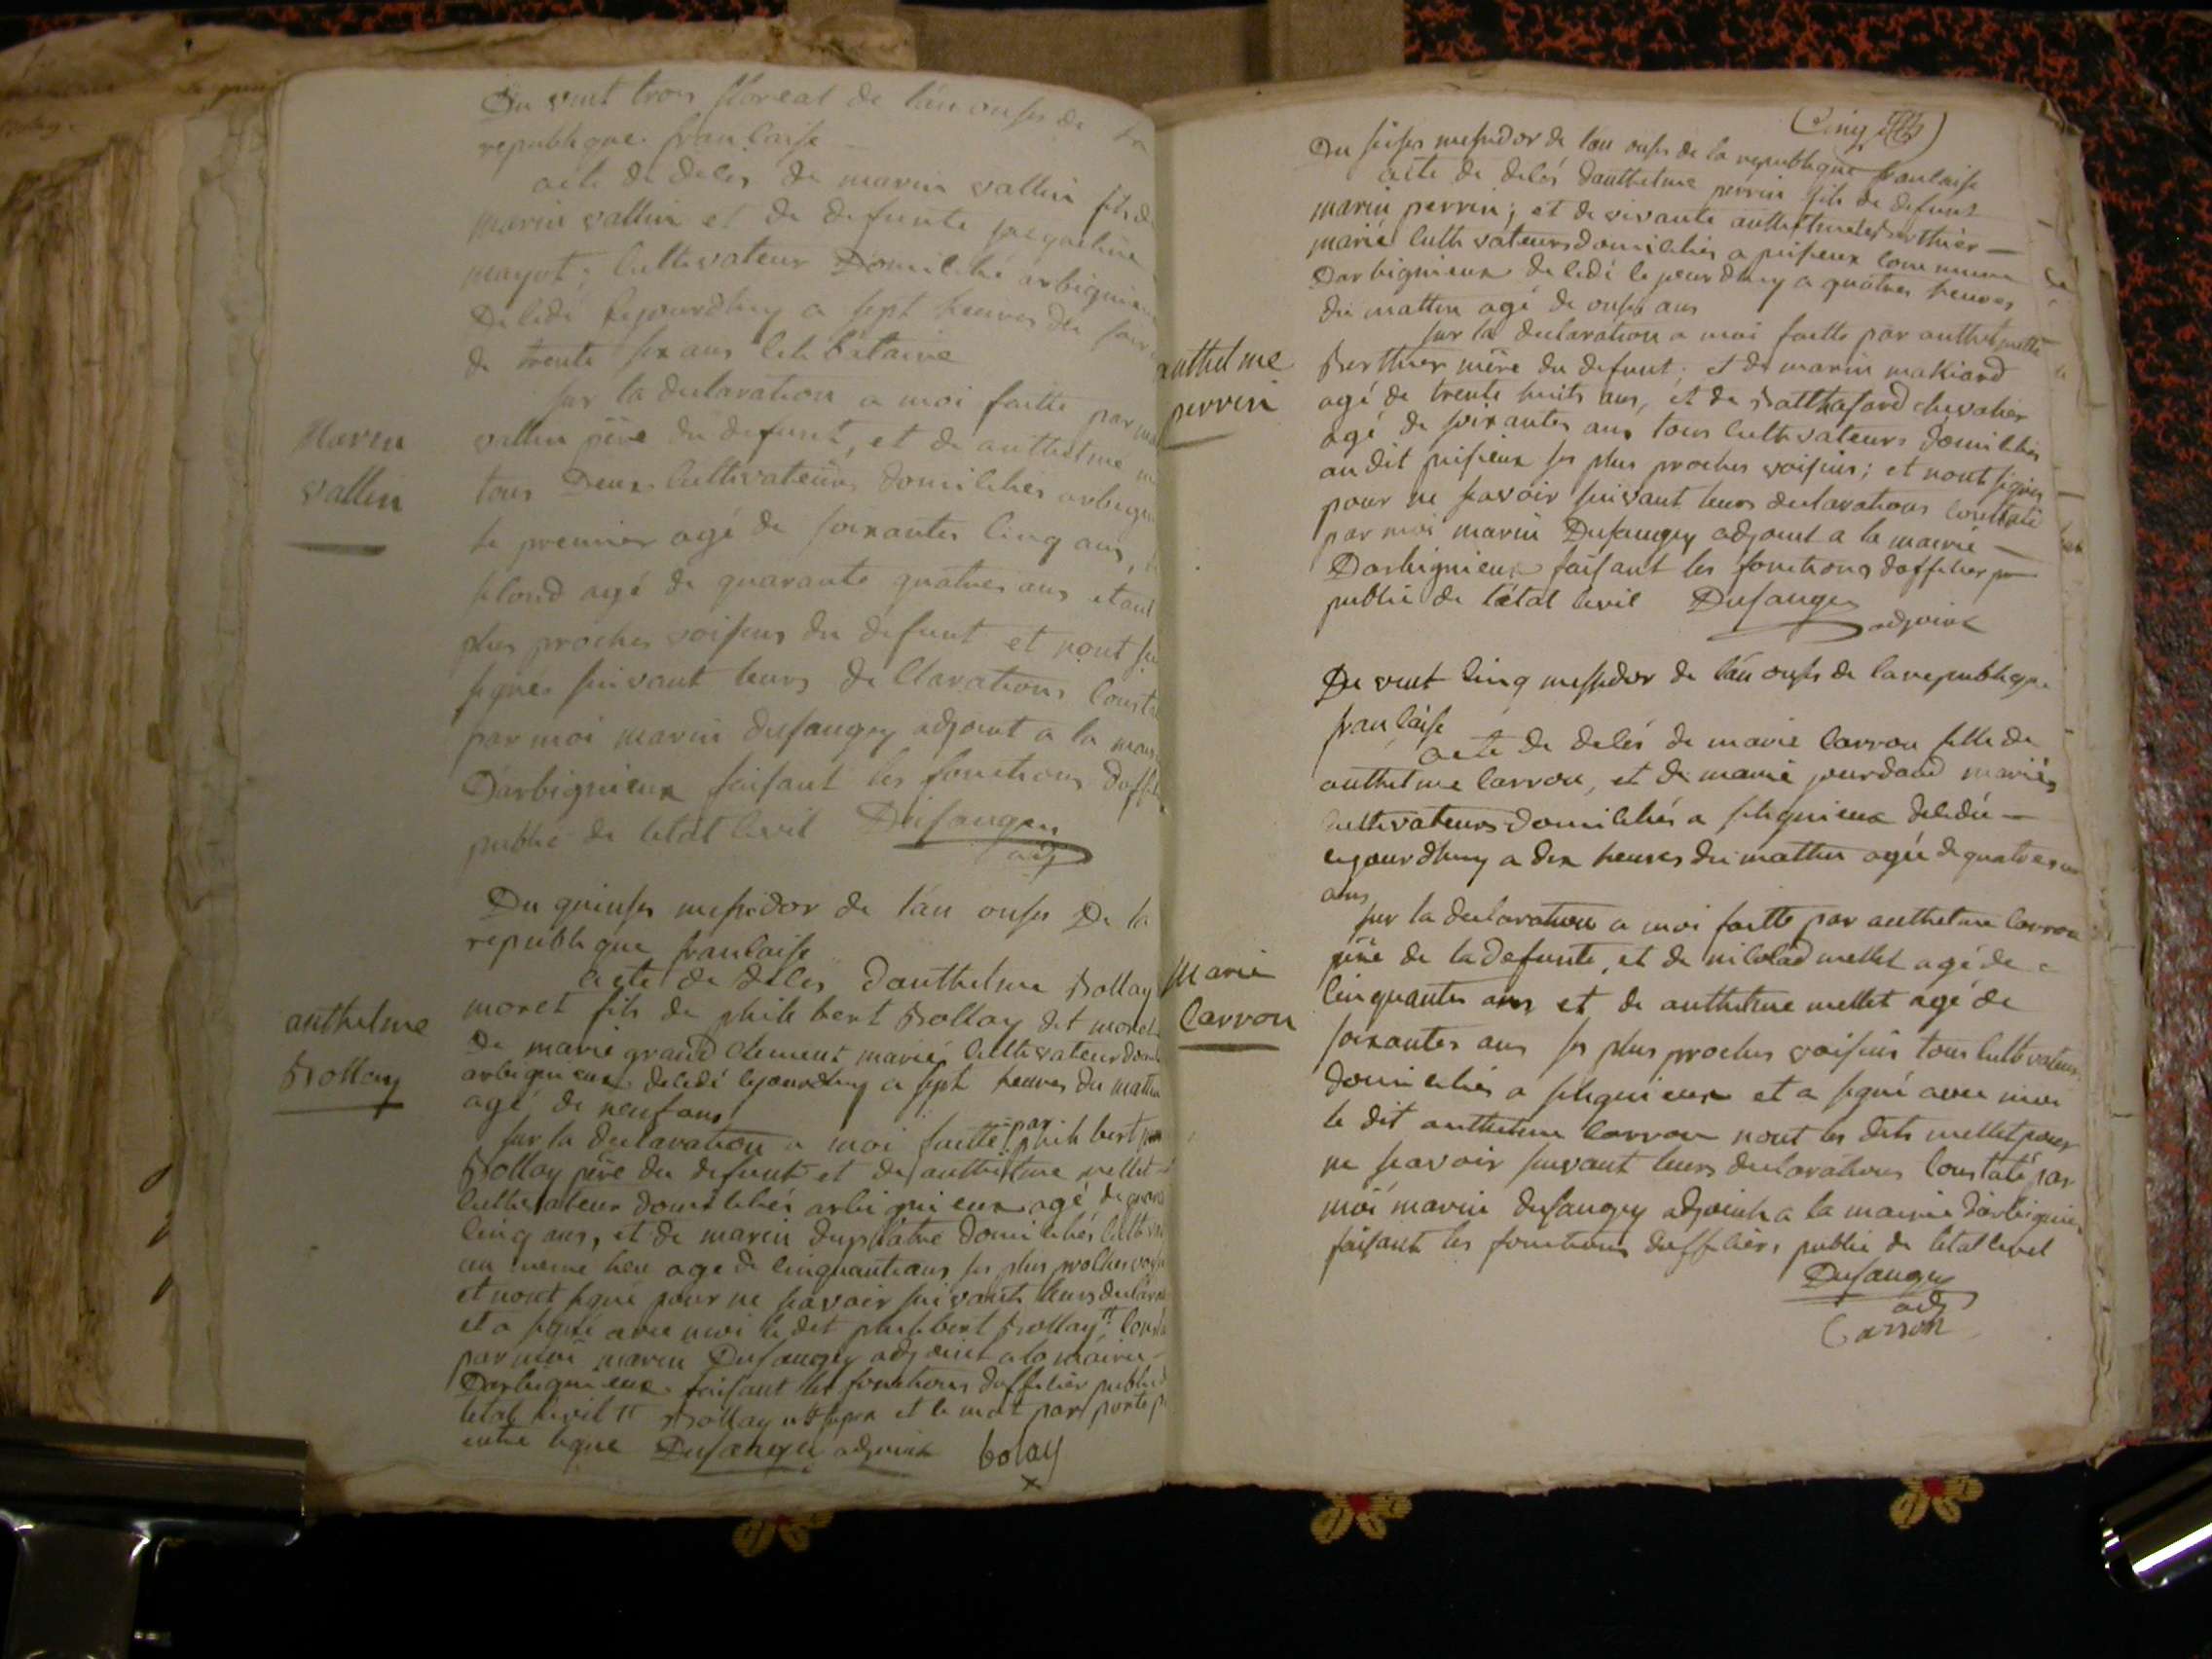 Du vint trois floreal de l'an onses de la
republique francaise
acte de deces de marin vallin fils de
marin vallin et de defunte jacqueline
peayot; cultivateur Domicilié arbignieux
Decedé lejourdhuy a sept heures du soir
de trente six ans celibataire
sur la declaration a moi faitte par
Marin
vallin
vallin père du defunt, et de anthelme
tous Deux cultivateurs domiciliés arbign
le premier agé de soixantes cinq ans,
second agé de quarante quatres ans etant
plus proches voisins du defunt et nont
signes suivant leurs declarations
par moi marin dusaugey adjoint a la
Darbignieux faisant les fonctions
public de letat civil Dusaugey
adj
Du quinses messidor de l'an onses De la
republique francaise
acte de deces Danthelme Bollay
anthelme
Bollay
moret fils de philibert Bollay dit moret
De marie grand clement mariés cultivateur
arbignieux decedé lejourdhuy a sept heures du mattin
agé de neuf ans
sur la declaration a moi faitte par philibert
Bollay père du defunt et de anthelme mellet
cultivateur domiciliés arbignieux agé de
cinq ans, et de marin duplatre domiciliés
au meme lieu agé de cinquante ans ses plus proches
et nont signé pour ne scavoir suivant leurs
et a signé avec moi le dit philibert Bollay tt
par moi marin Dusaugey adjoint a la mairie
Darbignieux faisant les fonctions dofficier public
letat civil tt Bollay et le mot par porté
entre ligne Dusaugey adjoint bolay
Cinq
Du seises messidor de l'an onses de la republique francaise
acte de decés danthelme perrin fils de defunt
marin perrin; et de vivante anthelmette Berthier
mariés cultivateurs domiciliés a pisieux commune
Darbignieux decedé lejourdhuy a quatres heures
du mattin agé de onses ans
anthelme
perrin
sur la declaration a moi faitte par anthelmette
Berthier mère du defunt; et de marin
agé de trente huits ans, et de Balthasard chevalier
agé de soixantes ans tous cultivateurs domiciliés
au dit pisieux ses plus proches voisins; et nont signés
pour ne scavoir suivant leurs declarations constaté
par moi marin Dusaugey adjoint a la mairie
Darbignieux faisant les fonctions dofficier
public de létat civil Dusaugey
adjoint
Du vint cinq messidor de l'an onses de la republique
francaise
acte de decés de marie Carron fille de
anthelme Carron, et de marie jourdand mariés
cultivateurs domiciliés a slignieux decedée
lejourdhuy a dix heures du mattin agée de quatres
ans
Marie
Carron
sur la declaration a moi faitte par anthelme Carron
père de la defunte, et de nicolad mellet agé de
cinquantes ans et de anthelme mellet agé de
soixantes ans ses plus proches voisins tous cultivateurs
domiciliés a slignieux et a signé avec moi
le dit anthelme Carron nont les dits mellet pour
ne scavoir suivant leurs declarations Constaté par
moi marin dusaugey adjoint a la mairie darbignieux
faisant les fonctions dofficiers public de letat civil
Dusaugey
adj
Carron